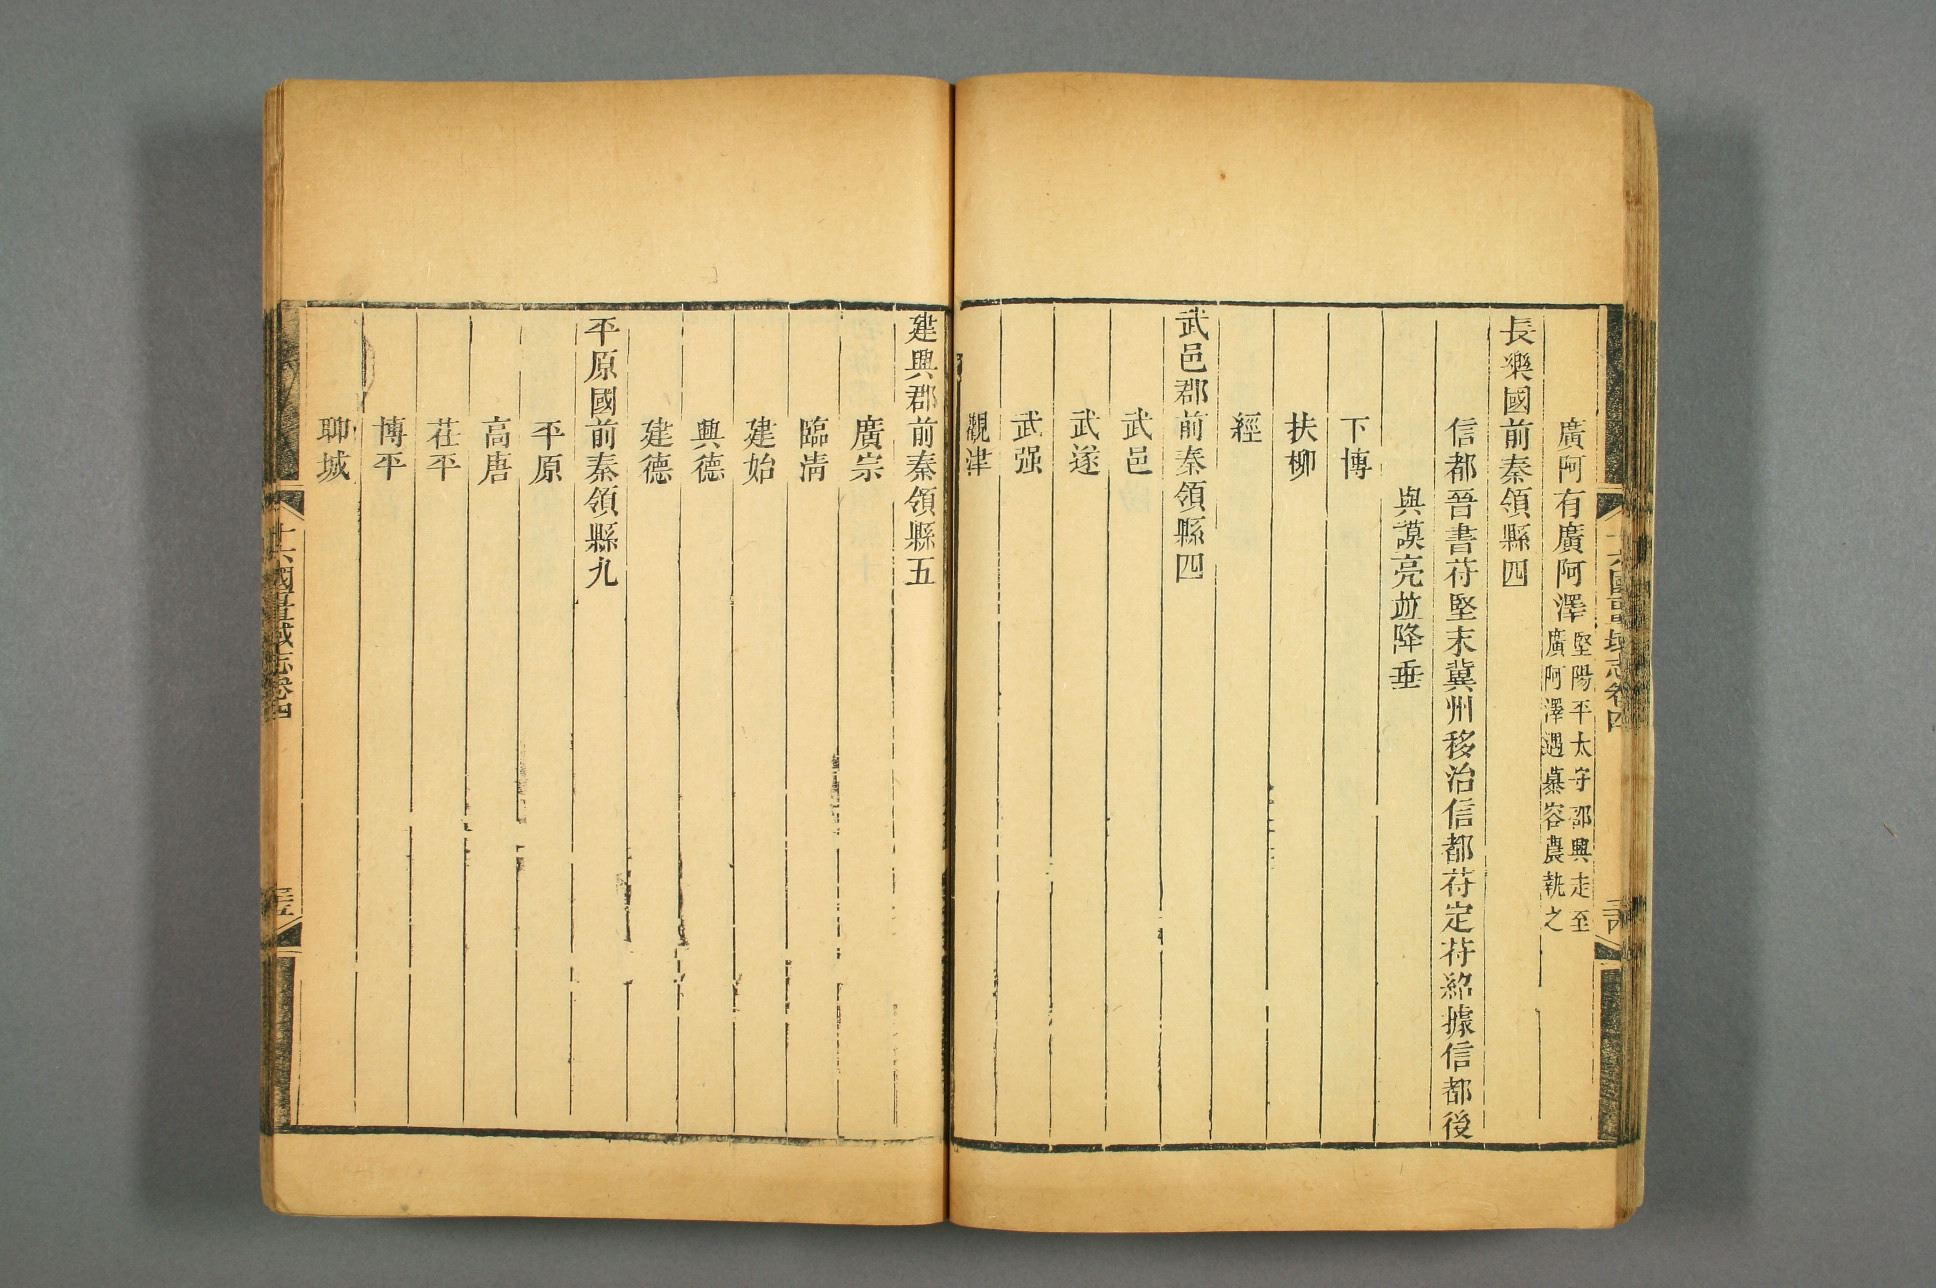 廣阿有廣阿澤堅陽平太守邵興走至廣阿澤遇慕容農執之
長樂國前秦領縣四
信都晉書苻堅末冀州移治信都苻定苻紹據信都後
與謨亮並降垂
下博
扶柳
經
武邑郡前秦領縣四
武邑
武遂
武强
觀津
建興郡前秦領縣五
廣宗
臨清
建始
興德
建德
平原國前秦領縣九
平原
高唐
茌平
博平
聊城
十六國疆域志卷四